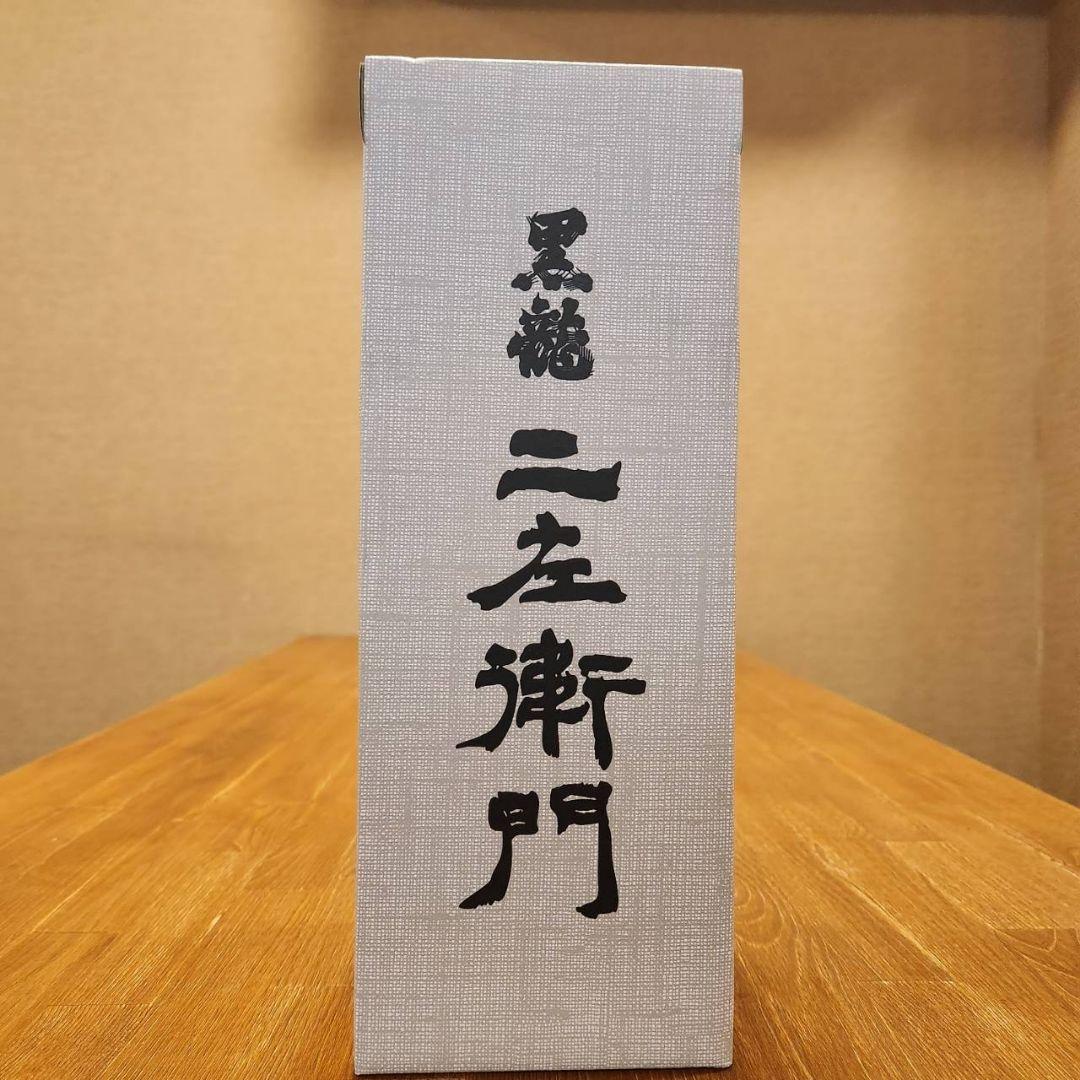 黒龍 二左衛門